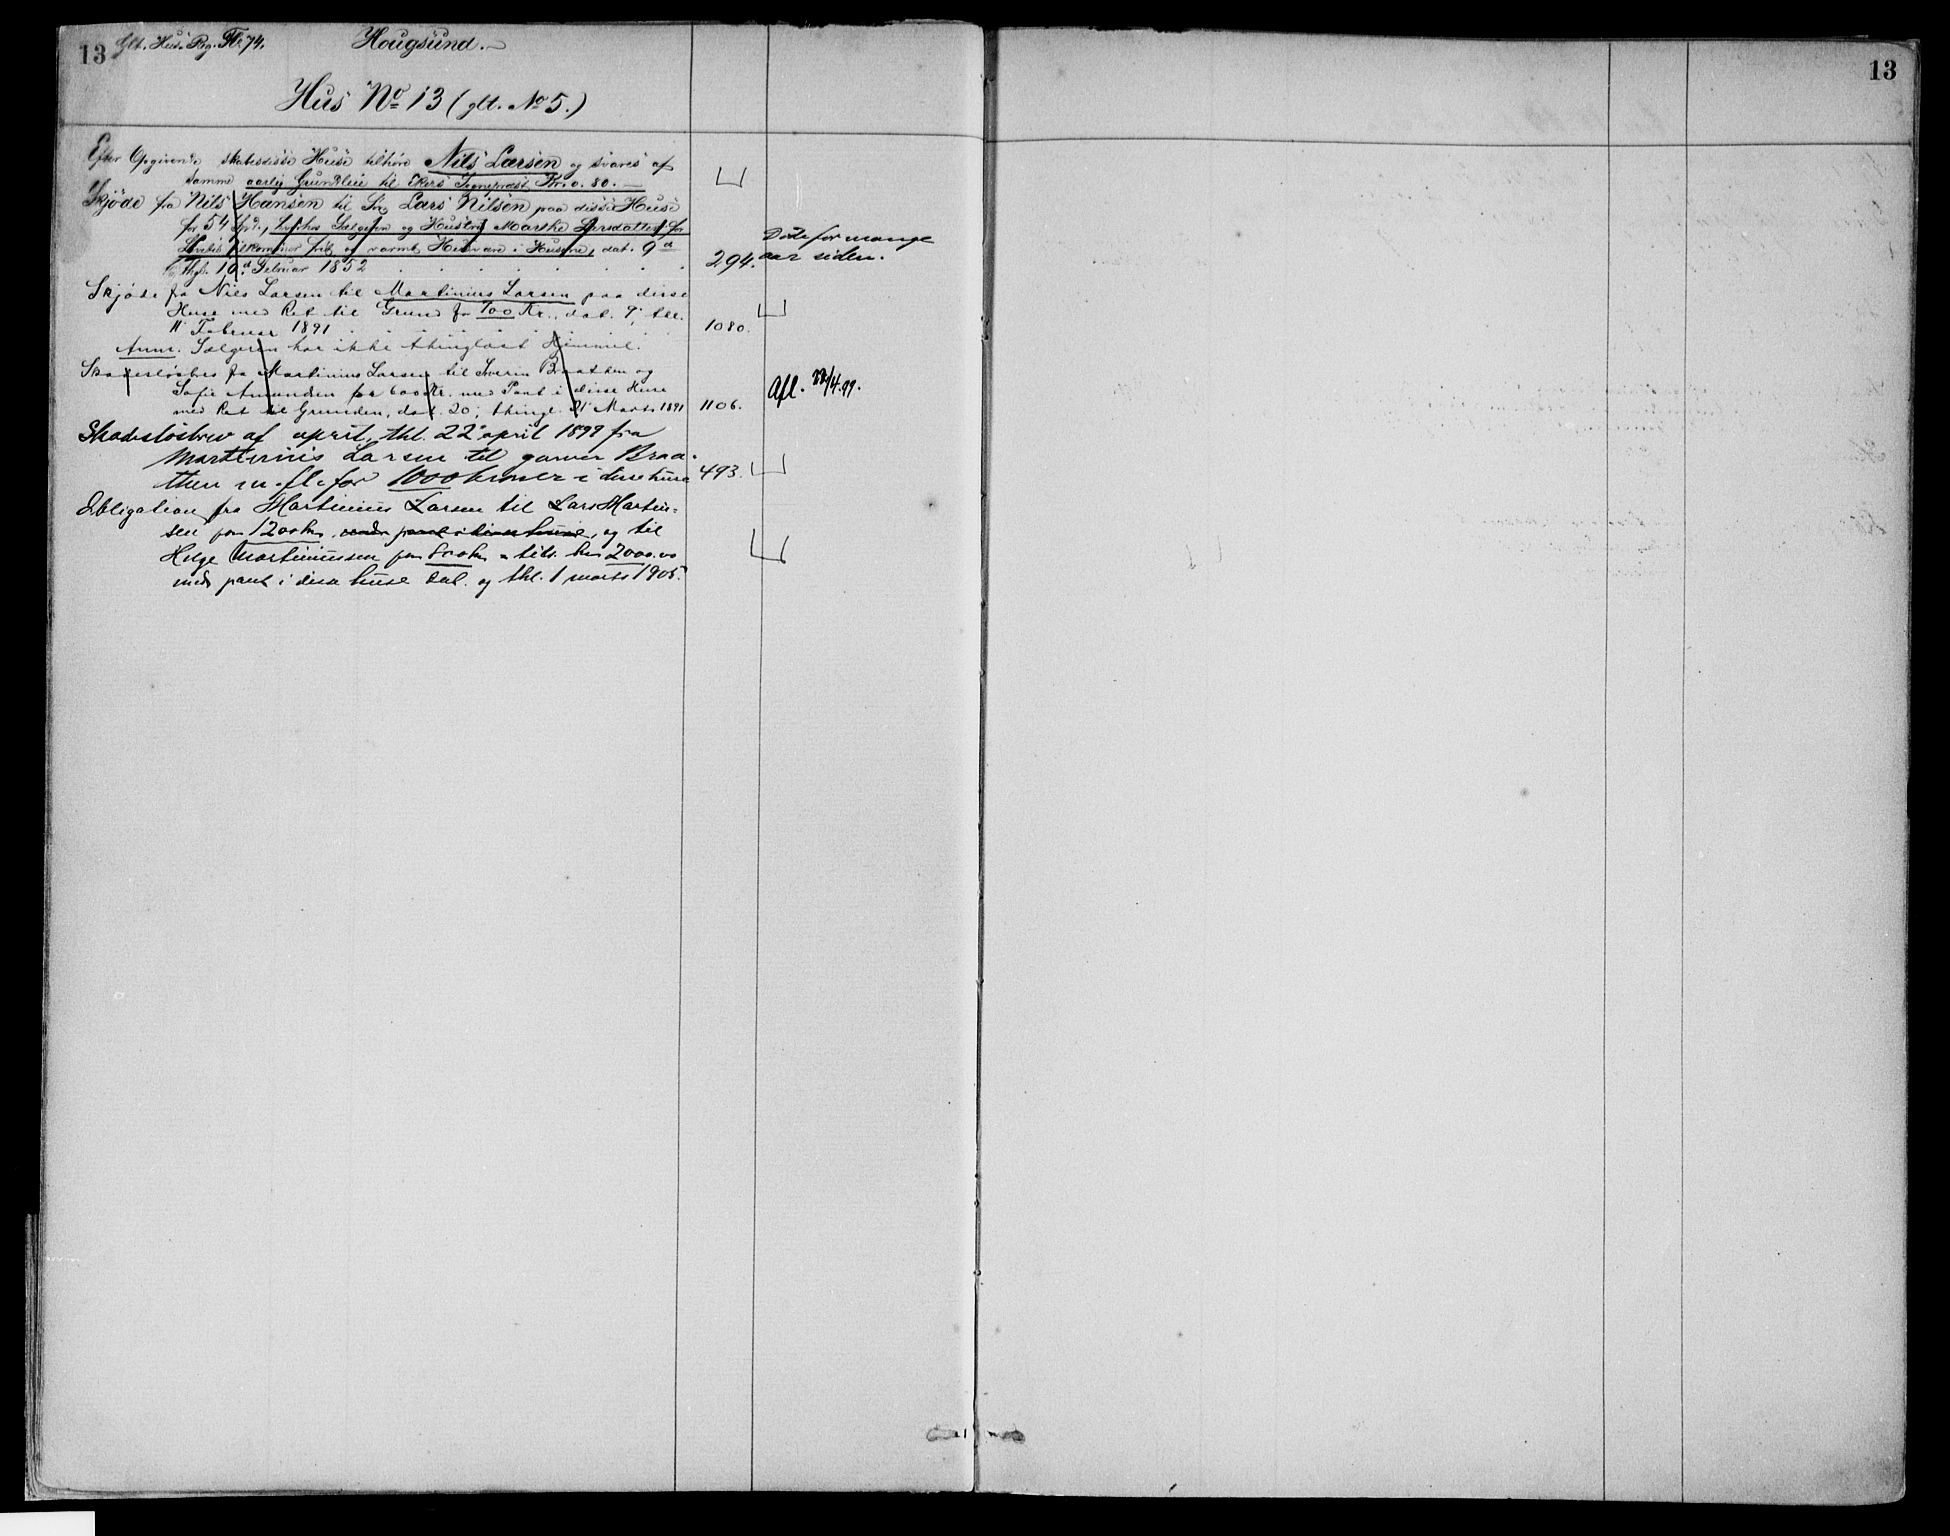 13 Glt. Hus. Reg. Fl. 74. Hougsund. 13
Hus No 13 (glt. No 5.)
Efter Opgivende skal disse Huse tilhøre Nils Larsen og svares af
samme aarlig Grundleie til Ekers Sognepræst Kr. 0.80.
Skjøde fra Nils Hansen til Søn Lars Nilsen paa disse Huse
for 54 Spd., hvorhos Sælgeren og Hustru Marthe Larsdatter for
Livstid tilkommer frit og varmt Husvære i Husene, dat. 9d
thgl. 10d Februar 1852 294. Døde for mange
aar siden.
Skjøde fra Nils Larsen til Martinius Larsen paa disse
Huse med Ret til Grund for 700 Kr., dat. 9, thl.
11 Februar 1891 1080.
Anm. Sælgeren har ikke thinglæst Hjemmel.
Skadesløsbrev fra Martinius Larsen til Iverin Braathen og
Sofie Amunden for 600 Kr. med Pant i disse Huse
med Ret til Grunden, dat. 20, thingl. 21 Marts 1891 1106. Afl. 22/4.99.
Skadesløsbrev af april, thl. 22 april 1899 fra
Martinius Larsen til garver Braa-
then m. fl. for 1000 kroner i disse huse 493.
Obligation fra Martinius Larsen til Lars Martin-
sen for 1200 kr, med pant i disse huse, og til
Helge Martiniussen for 800 kr = tils. kr 2000.00
med pant i disse huse dat. og thl. 1 marts 1905.